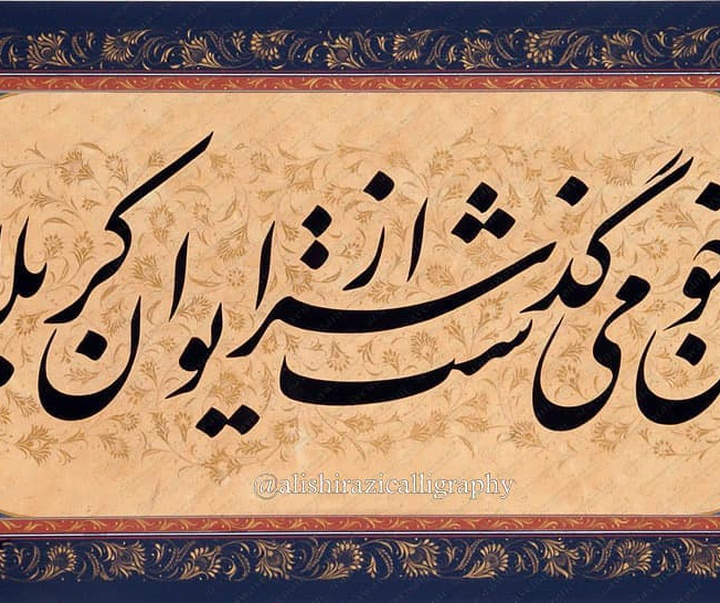 خون می گذشت از سر ایوان کربلا
@alishirazicalligraphy